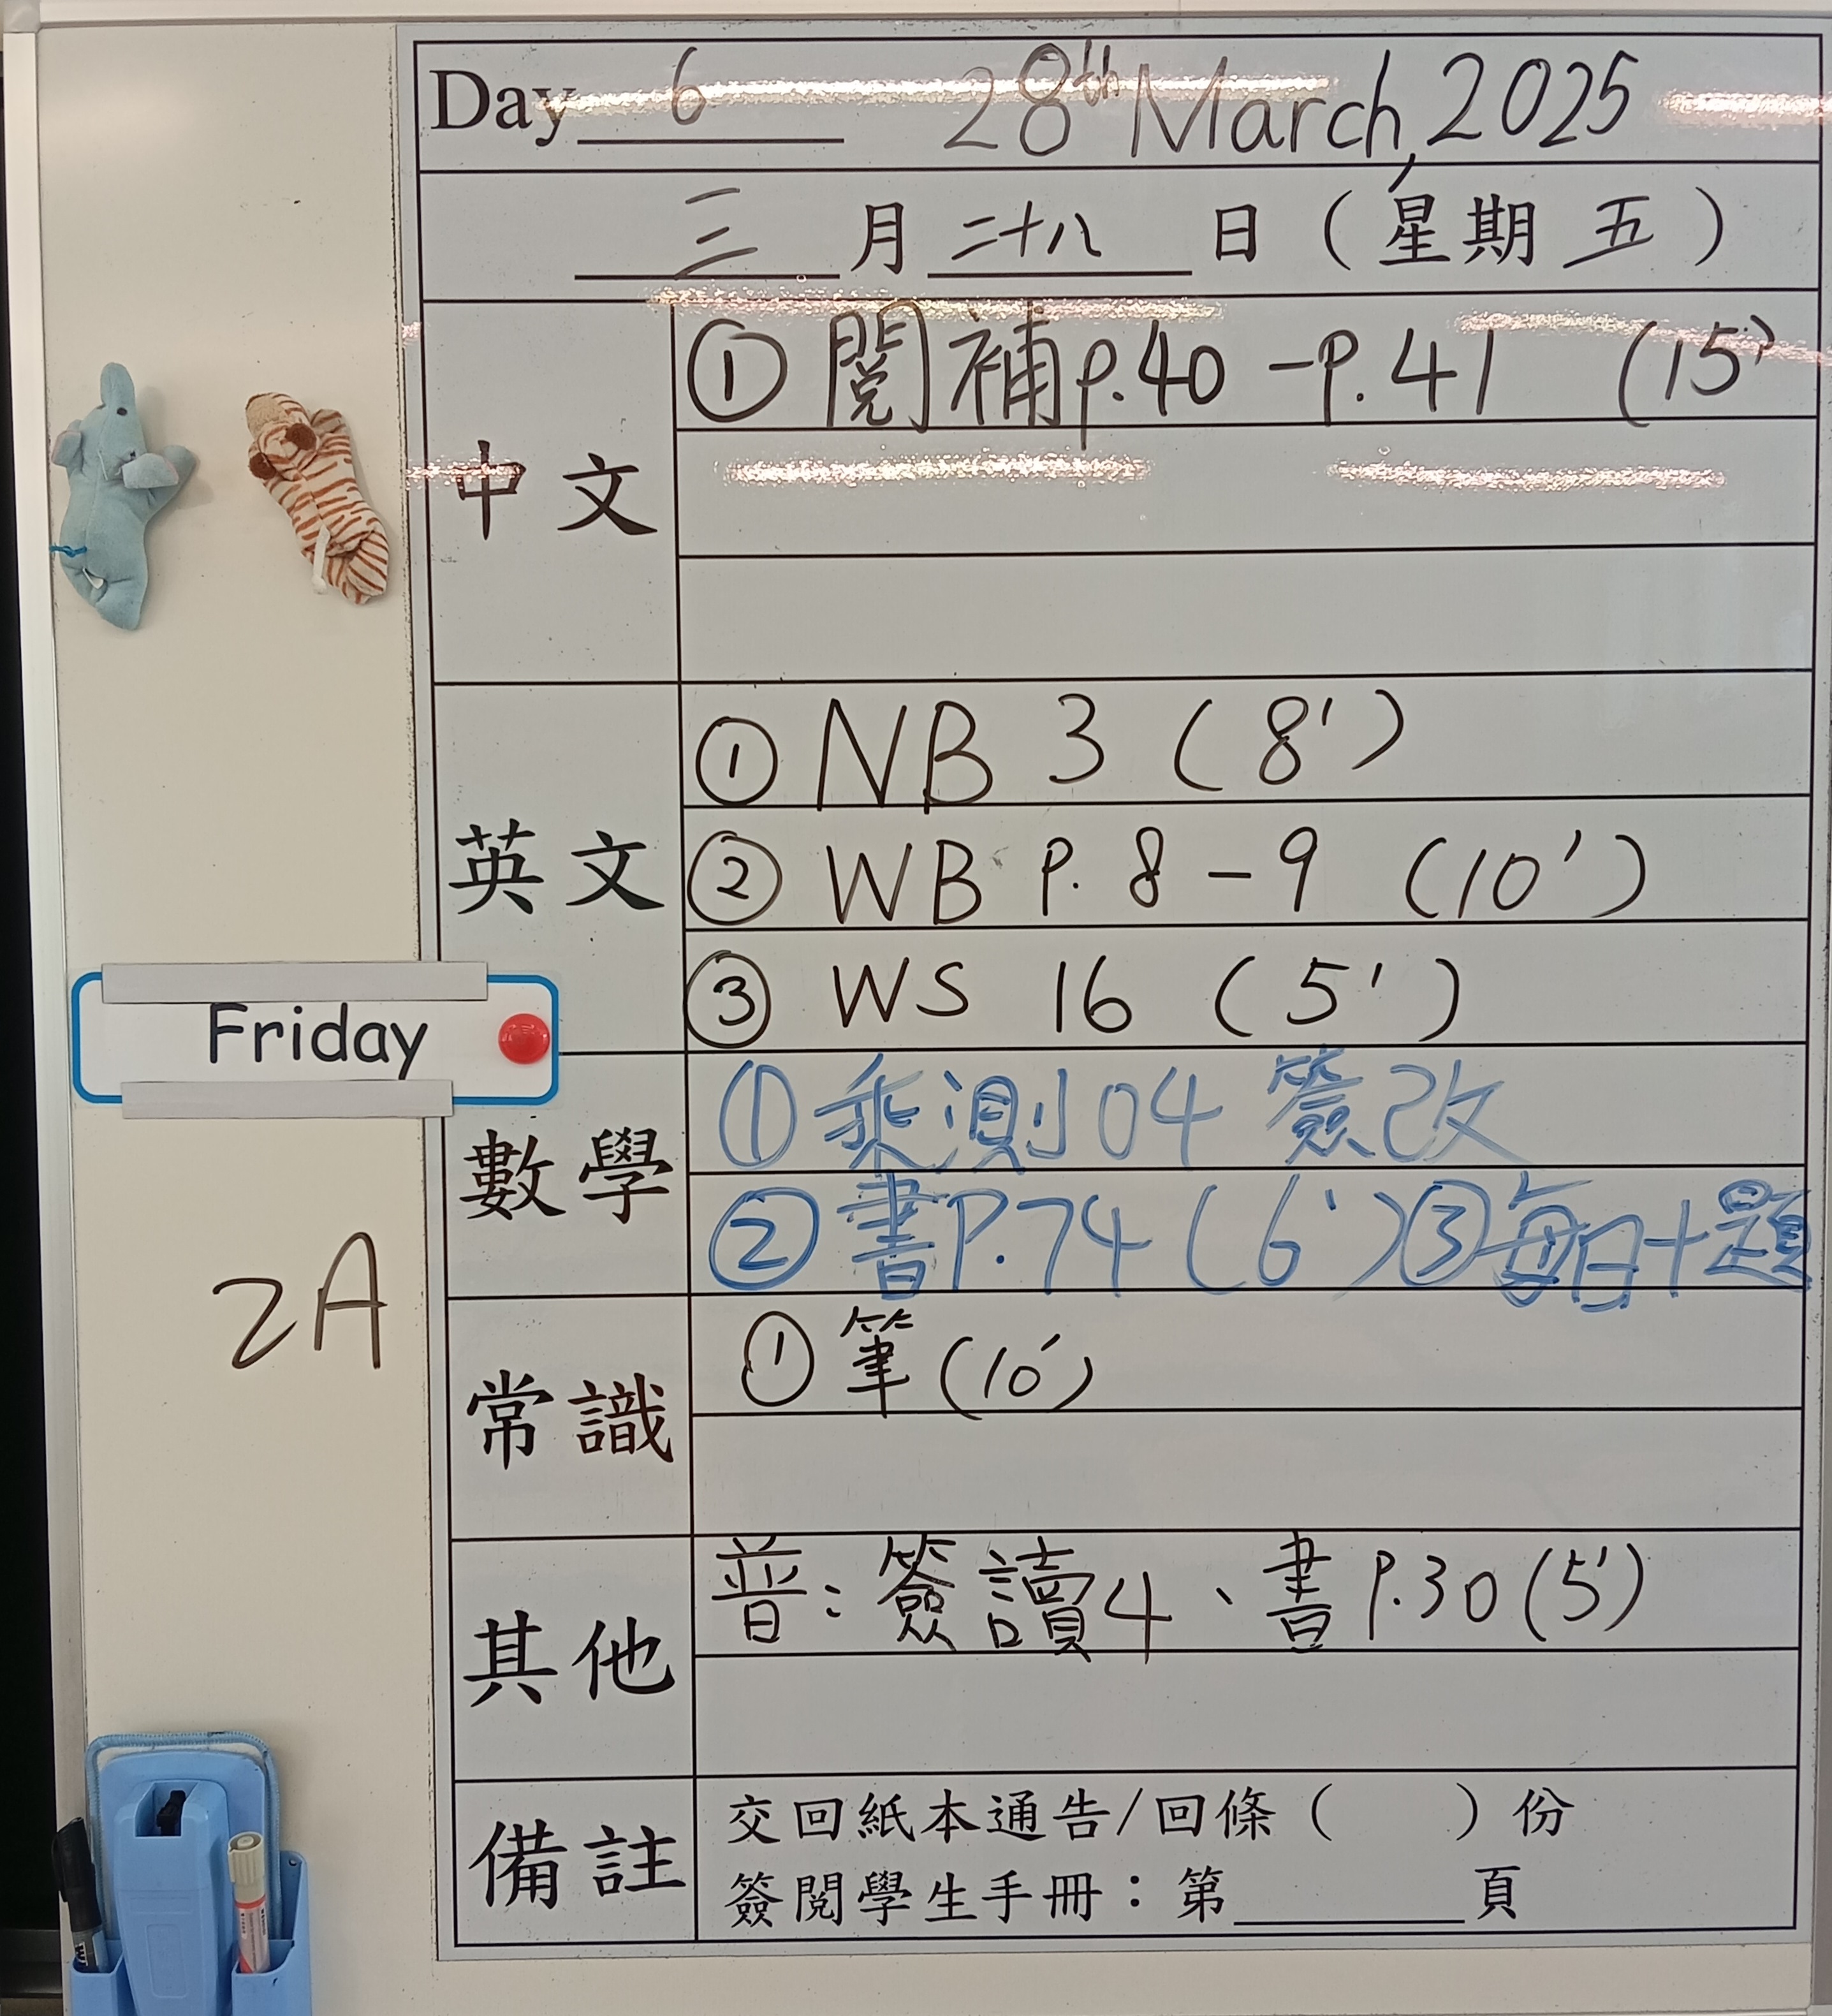 Day 6 28th March, 2025
三 月 二十八 日 ( 星期 五 )
中文
① 閱補 p.40 - p.41 (15')
英文
① NB 3 (8')
② WB P. 8 - 9 (10')
③ WS 16 (5')
Friday
數學
① 乘測 04 簽改
② 書 P.74 (6') ③ 每日十題
2A
常識
① 筆 (10')
其他
普：簽讀4、書 P.30 (5')
備註
交回紙本通告/回條 ( ) 份
簽閱學生手冊：第 頁